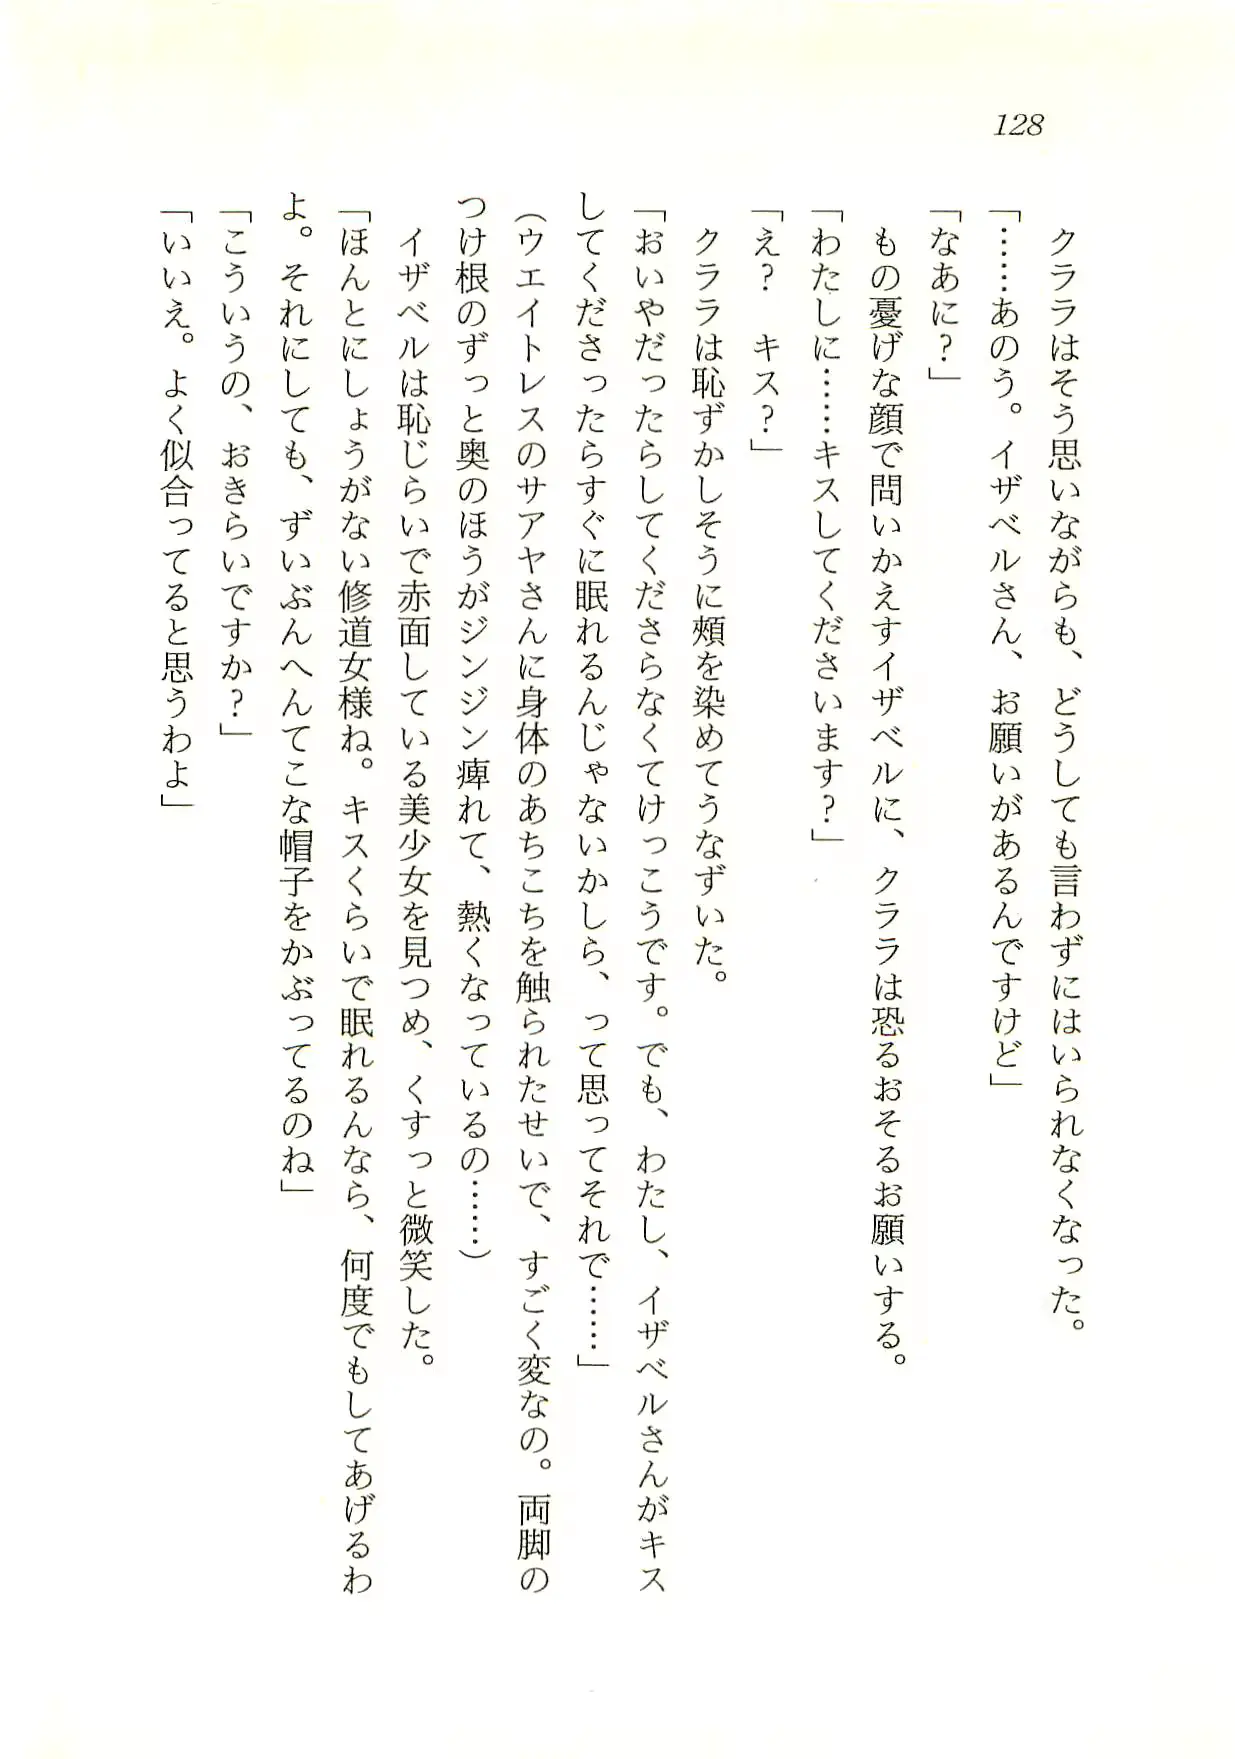 128
クララはそう思いながらも、どうしても言わずにはいられなくなった。
「……あのう。イザベルさん、お願いがあるんですけど」
「なあに？」
もの憂げな顔で問いかえすイザベルに、クララは恐るおそるお願いする。
「わたしに……キスしてくださいます？」
「え？　キス？」
クララは恥ずかしそうに頰を染めてうなずいた。
「おいやだったらしてくださらなくてけっこうです。でも、わたし、イザベルさんがキス
してくださったらすぐに眠れるんじゃないかしら、って思ってそれで……」
（ウエイトレスのサアヤさんに身体のあちこちを触られたせいで、すごく変なの。両脚の
つけ根のずっと奥のほうがジンジン痺れて、熱くなっているの……）
イザベルは恥じらいで赤面している美少女を見つめ、くすっと微笑した。
「ほんとにしょうがない修道女様ね。キスくらいで眠れるんなら、何度でもしてあげるわ
よ。それにしても、ずいぶんへんてこな帽子をかぶってるのね」
「こういうの、おきらいですか？」
「いいえ。よく似合ってると思うわよ」